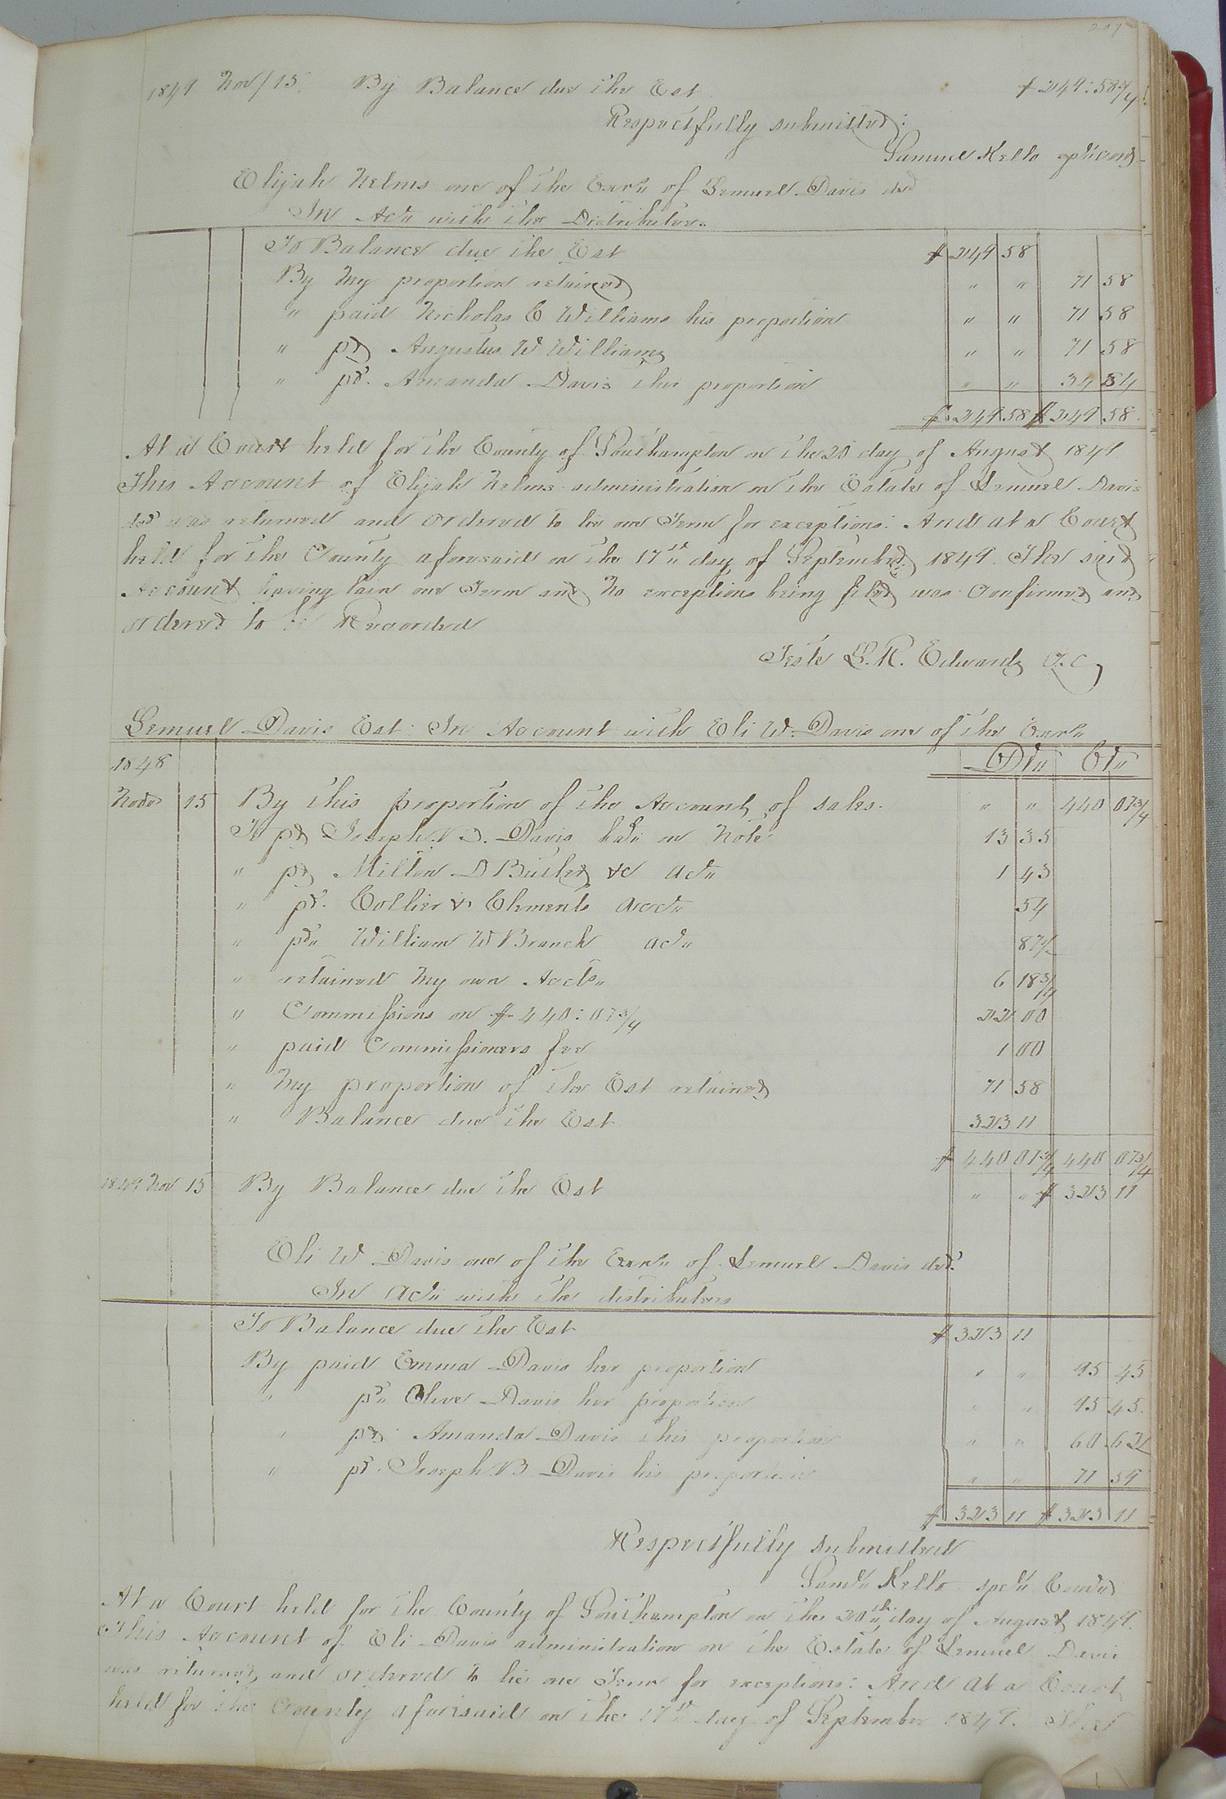 1849 Nov/15 By Balance due the Est $249:58 3/4
Respectfully submitted:
Samuel Kello
Elijah Helms one of the Exr" of Lemuel Davis decd
In Act" with the Distributees
To Balance due the Est $249 58
By my proportion retained " " 71 58
" paid Nicholas C Williams his proportion " " 71 58
" pd Augustus W Williams " " 71 58
" pd. Amanda Davis ther proportion " " 34 84
$249 58 $249 58
At a Court held for the County of Southampton on the 20 day of August 1849
This Account of Elijah Helms administration on the Estate of Lemuel Davis
decd was returned and ordered to lie one Term for exceptions: And at a Court
held for the County aforesaid on the 17th day of September 1849. The said
Account having lain one Term and No exceptions being filed was confirmed and
ordered to be Recorded
Teste L. R. Edwards
Lemuel Davis Est: In Account with Eli W. Davis one of the Exr"
1848 Dr" Cr"
15 By this proportion of the Account of sales. " " 440 07 3/4
To pd Joseph B. Davis on Note 13 35
" pd Milton D Butler &c act" 1 45
" pd. Collier & Clements acct" 54
" pd" William W Branch act" 87 1/2
" retained my own Acct" 6 18 3/4
" Commissions on $440:07 3/4 22 00
" paid Commissioners fee 1 00
" My proportion of the Est retained 71 58
" Balance due the Est 323 11
$440 07 3/4 440 07 3/4
1849 Nov 15 By Balance due the Est " " $323 11
Eli W Davis one of the Exr" of Lemuel Davis decd.
In Act" with the distributees
To Balance due the Est $323 11
By paid Emma Davis her proportion " " 95 45
" pd" Olive Davis her proportion " " 95 45
" pd. Amanda Davis this proportion " " 60 62
" pd. Joseph B Davis his proportion " " 71 59
$323 11 $323 11
Respectfully submitted
Saml" Kello spec"
At a Court held for the County of Southampton on the 20th day of August 1849.
This Account of Eli Davis administration on the Estate of Lemuel Davis
was returned and ordered to lie one Term for exceptions: And at a Court
held for the County aforesaid on the 17th day of September 1849.